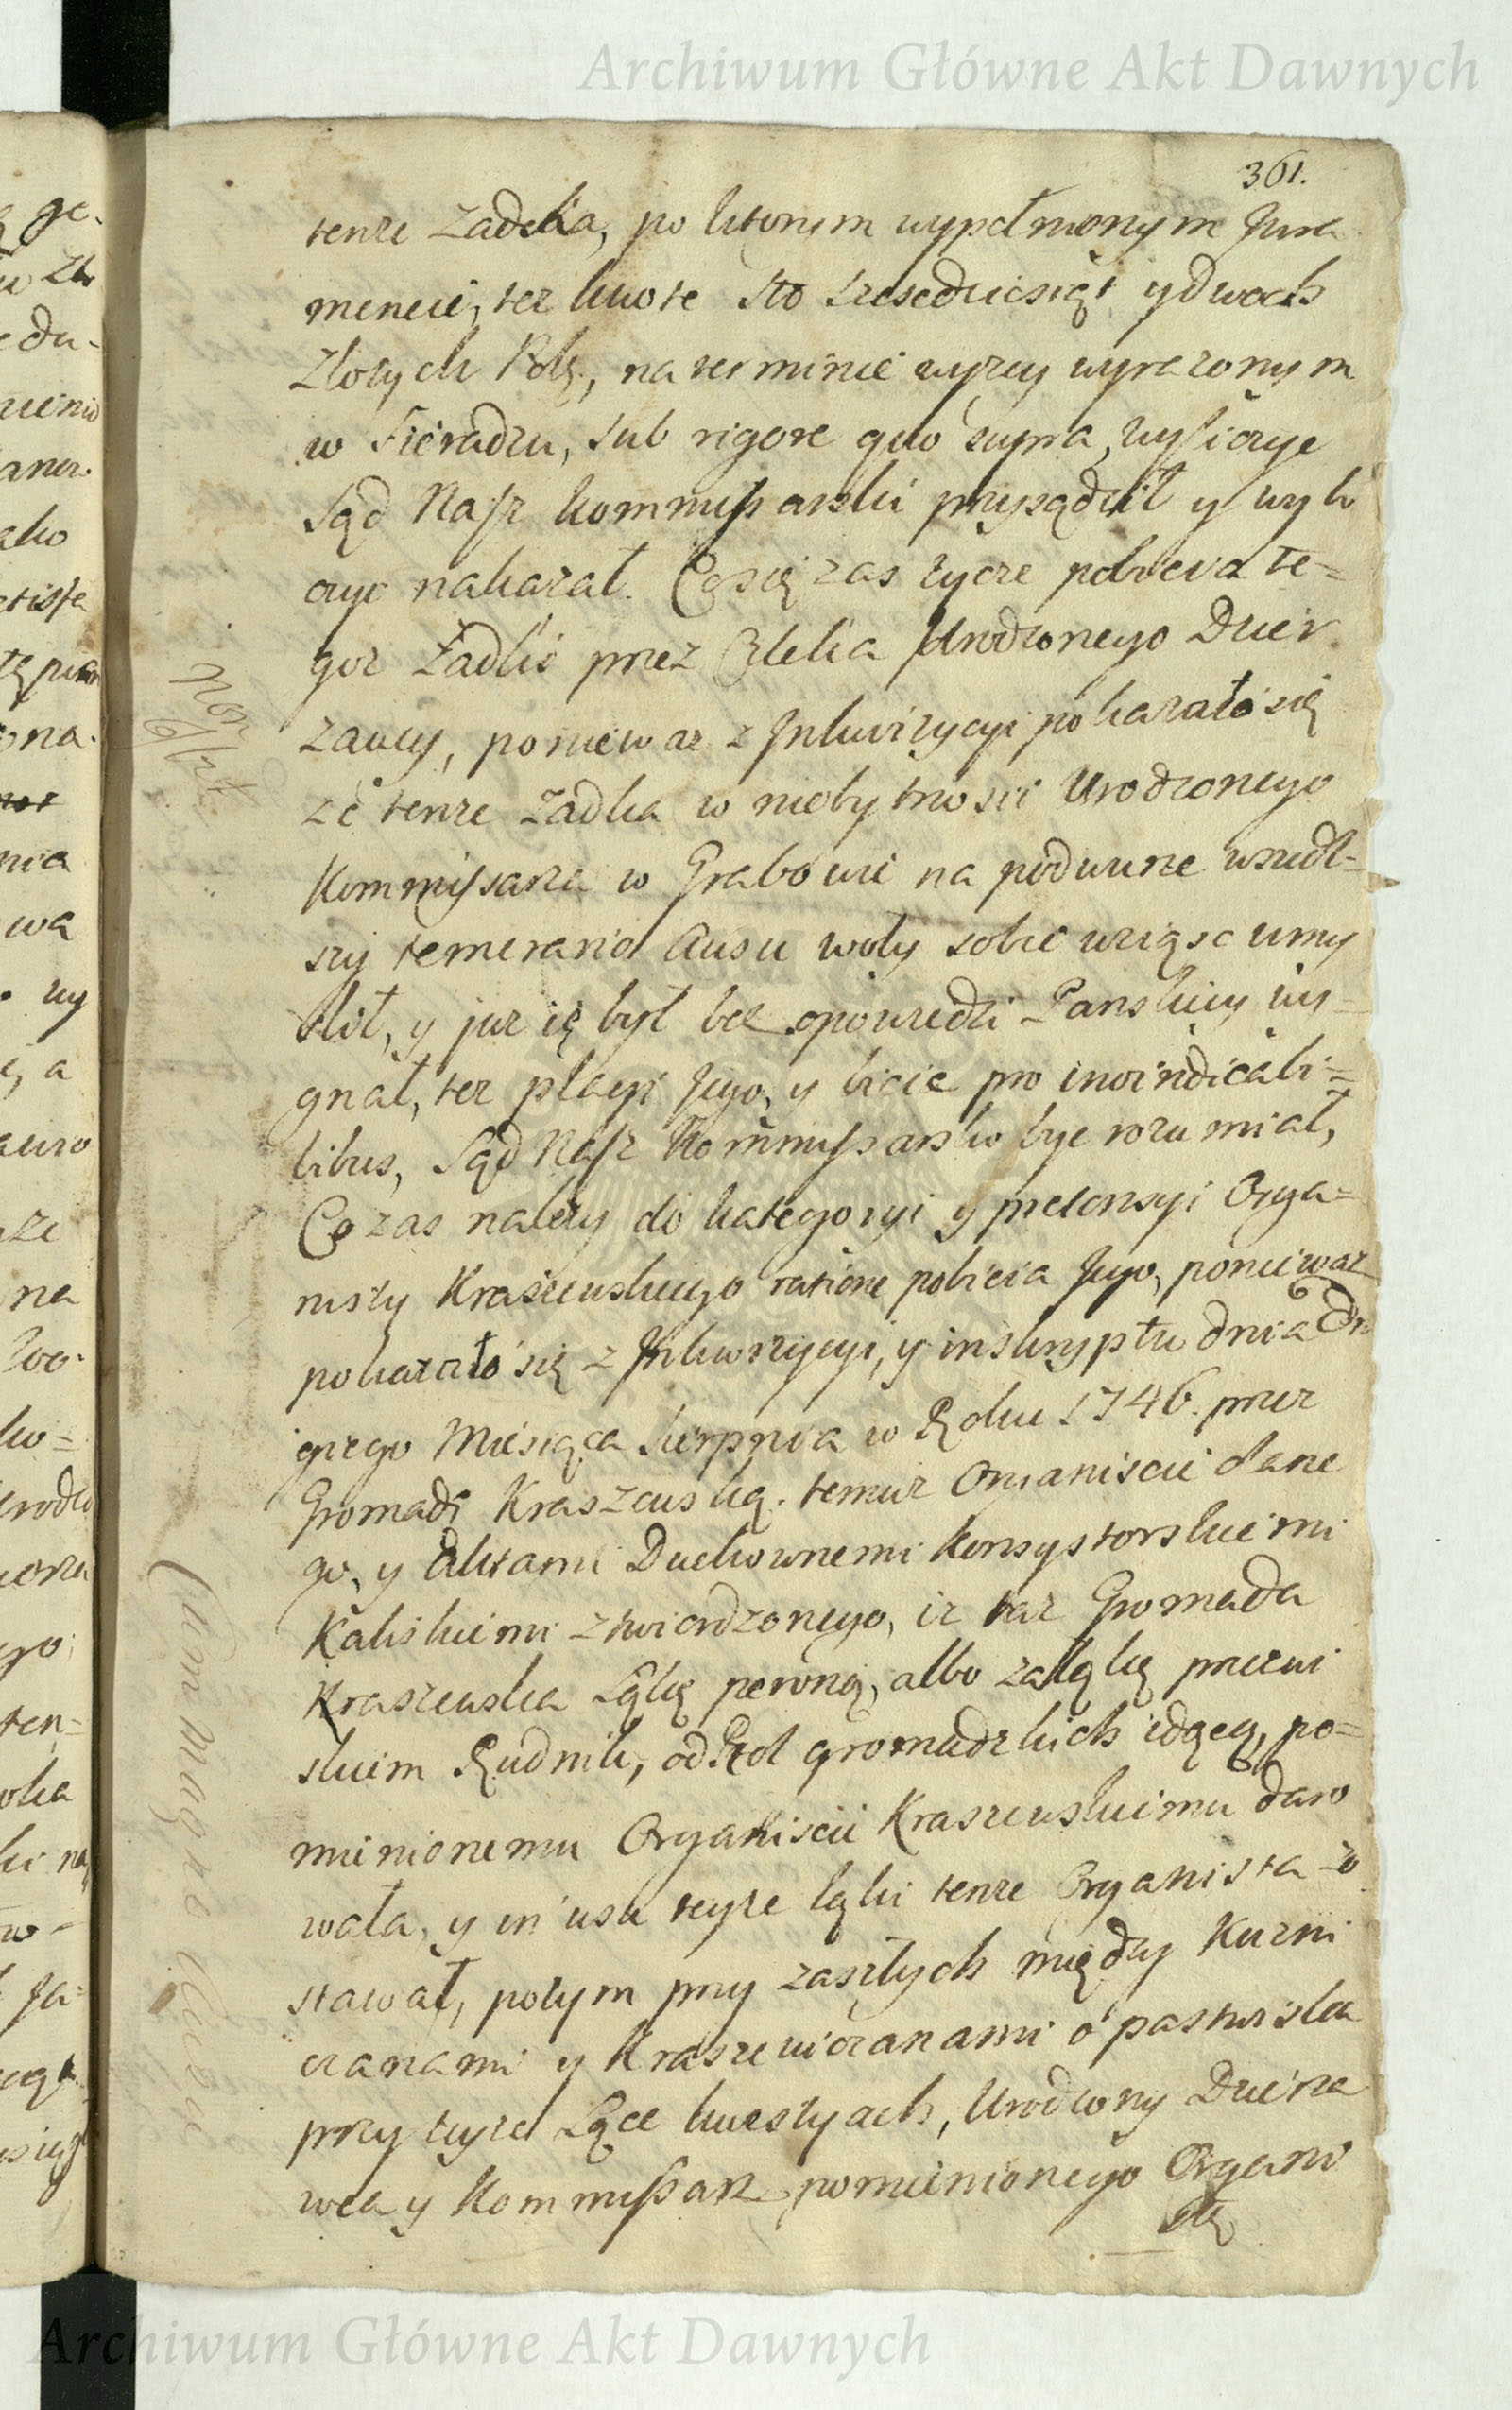 Archiwum Główne Akt Dawnych
361.
tenże Zadelka, po ktorym wypełnionym Jura
mencie, też kwote sto szescdziesiąt y dwoch
Złotych Pols., na terminie wyżey wyrazonym
w Sieradzu, sub rigore quo supra, wyliczyc
Sąd Nasz Kommissarski przysądził y wyli
czyc nakazał. Co się zas tycze pobicia te=
goz Zadlki przez Urodzonego Dzier
zawcy, poniewaz z Inkwizycyi pokazało się
ze tenze Zadlka w niebytnosci Urodzonego
Kommissarza w Grabowie na podworze wszedł=
szy temerario ausu woły sobie wziąsc umy
slił, y juz ie był bez opowiedzi Panskiey wy=
gnał, tez plagi Jego, y bicie pro invindicabi=
libus, Sąd Nasz Kommissarski byc rozumiał,
Co zas nalezy do kategoryi y pretensyi Orga=
nisty Kraszewskiego ratione pobicia Jego, poniewaz
pokazało się z Inkwizycyi, y inskryptu dnia Dru
giego Miesiąca Sierpnia w Roku 1746. przez
Gromadę Kraszewską. temuz Organiscie dane
go, y Aktami Duchownemi Konsystorskiemi
Kaliskiemi ztwierdzonego, iz taz Gromada
Kraszewska Łąkę pewną, albo załąkę przeciw
skiem Rudnik, od Rol gromadzkich idącą, po=
mienionemu Organiscie Kraszewskiemu daro
wała, y in usu teyze łąki tenze Organista zo
stawał, potym przy zaszłych między Kuzni
czanami y Kraszewiczanami o pastwiska
przy teyze Łące kwestyach, Urodzony Dzierza
wca y Kommissarz pomienionego Organi
stę
Non
Cum magna
Archiwum Główne Akt Dawnych